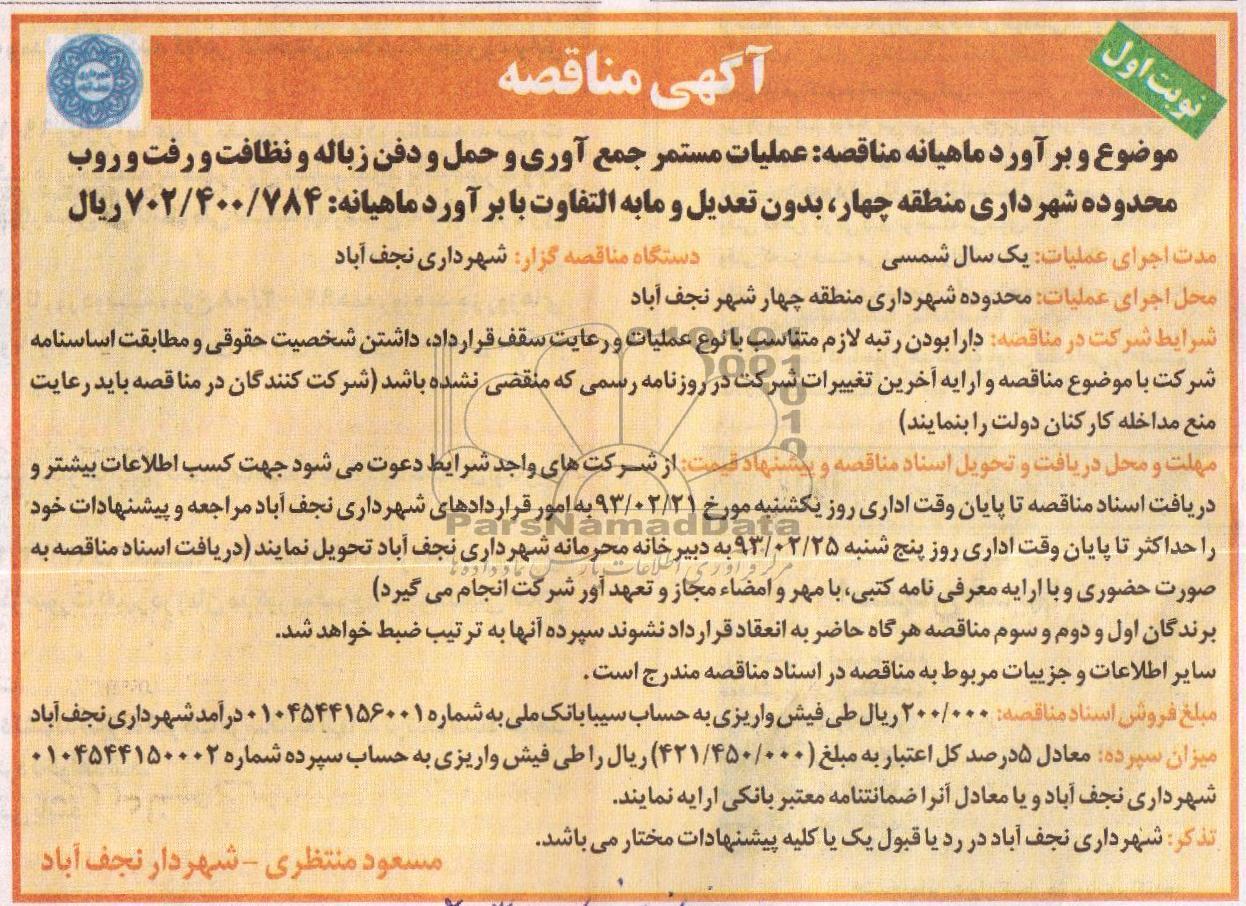 نوبت اول
آگهی مناقصه
شهرداری نجف آباد
موضوع و برآورد ماهیانه مناقصه: عملیات مستمر جمع آوری و حمل و دفن زباله و نظافت و رفت و روب
محدوده شهرداری منطقه چهار، بدون تعدیل و مابه التفاوت با برآورد ماهیانه: ۷۰۲/۴۰۰/۷۸۴ ریال
مدت اجرای عملیات: یک سال شمسی دستگاه مناقصه گزار: شهرداری نجف آباد
محل اجرای عملیات: محدوده شهرداری منطقه چهار شهر نجف آباد
شرایط شرکت در مناقصه: دارا بودن رتبه لازم متناسب با نوع عملیات و رعایت سقف قرارداد، داشتن شخصیت حقوقی و مطابقت اساسنامه
شرکت با موضوع مناقصه و ارایه آخرین تغییرات شرکت در روزنامه رسمی که منقضی نشده باشد (شرکت کنندگان در مناقصه باید رعایت
منع مداخله کارکنان دولت را بنمایند)
مهلت و محل دریافت و تحویل اسناد مناقصه و پیشنهاد قیمت: از شرکت های واجد شرایط دعوت می شود جهت کسب اطلاعات بیشتر و
دریافت اسناد مناقصه تا پایان وقت اداری روز یکشنبه مورخ ۹۳/۰۲/۲۱ به امور قراردادهای شهرداری نجف آباد مراجعه و پیشنهادات خود
ParsNamadData
را حداکثر تا پایان وقت اداری روز پنج شنبه ۹۳/۰۲/۲۵ به دبیرخانه محرمانه شهرداری نجف آباد تحویل نمایند (دریافت اسناد مناقصه به
مرکز فرآوری اطلاعات پارس نماد داده ها
صورت حضوری و با ارایه معرفی نامه کتبی، با مهر و امضاء مجاز و تعهد آور شرکت انجام می گیرد)
برندگان اول و دوم و سوم مناقصه هرگاه حاضر به انعقاد قرارداد نشوند سپرده آنها به ترتیب ضبط خواهد شد.
سایر اطلاعات و جزییات مربوط به مناقصه در اسناد مناقصه مندرج است.
مبلغ فروش اسناد مناقصه: ۲۰۰/۰۰۰ ریال طی فیش واریزی به حساب سیبا بانک ملی به شماره ۰۱۰۴۵۴۴۱۵۶۰۰۱ درآمد شهرداری نجف آباد
میزان سپرده: معادل ۵درصد کل اعتبار به مبلغ (۴۲۱/۴۵۰/۰۰۰) ریال را طی فیش واریزی به حساب سپرده شماره ۰۱۰۴۵۴۴۱۵۰۰۰۲
شهرداری نجف آباد و یا معادل آنرا ضمانتنامه معتبر بانکی ارایه نمایند.
تذکر: شهرداری نجف آباد در رد یا قبول یک یا کلیه پیشنهادات مختار می باشد.
مسعود منتظری - شهردار نجف آباد